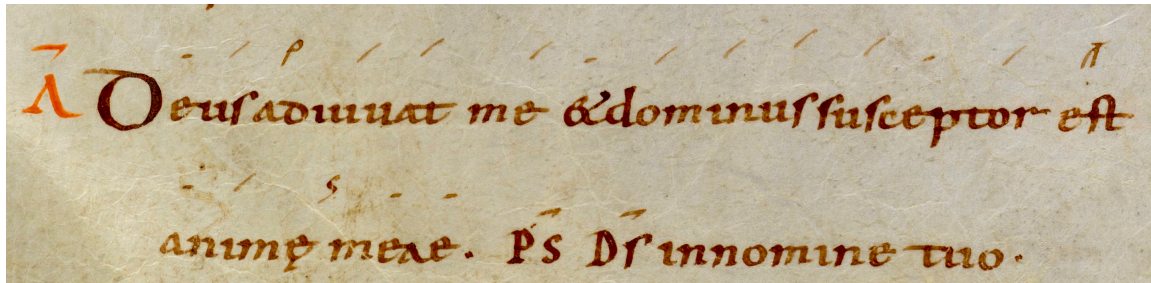 Ā Deus adiuuat me & dominus susceptor est
animę meae. P̄S D̄s innomine tuo.